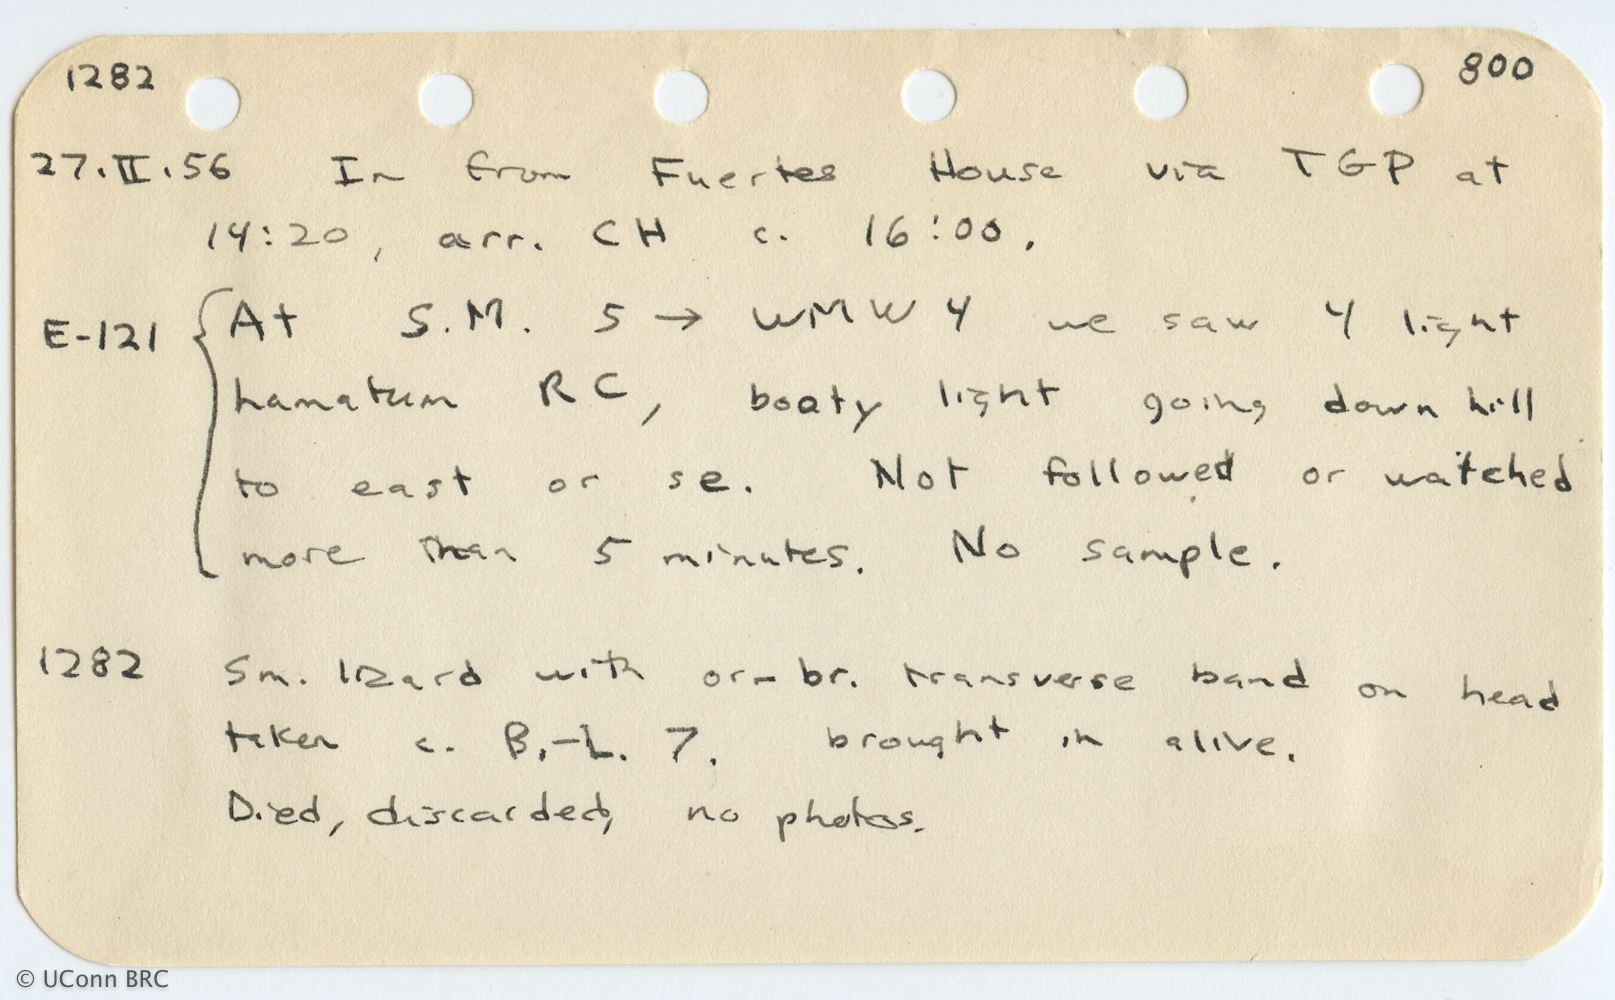 1282 800
27.II.56 In from Fuertes House via TGP at
14:20, arr. CH c. 16:00.
E-121 At S.M. 5 → WMW 4 we saw 4 light
hamatum RC, booty light going down hill
to east or se. Not followed or watched
more than 5 minutes. No sample.
1282 Sm. lizard with or-br. transverse band on head
taken c. B.-L. 7. brought in alive.
Died, discarded, no photos.
© UConn BRC